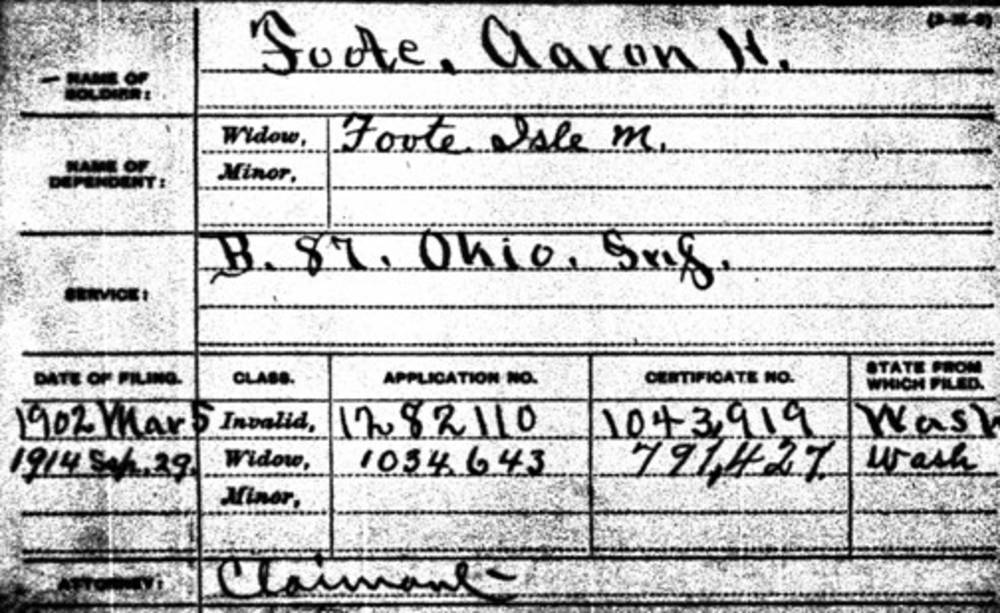 (3-1—8)
NAME OF SOLDIER: Foote, Aaron H.
NAME OF DEPENDENT: Widow, Foote Isle M.
Minor,
SERVICE: B. 87. Ohio. Inf.
DATE OF FILING. CLASS. APPLICATION NO. CERTIFICATE NO. STATE FROM WHICH FILED.
1902 Mar 5 Invalid, 1282110 1043,919 Wash
1914 Sep. 29. Widow, 1034.643 791,427. Wash
Minor,
ATTORNEY: Claimant